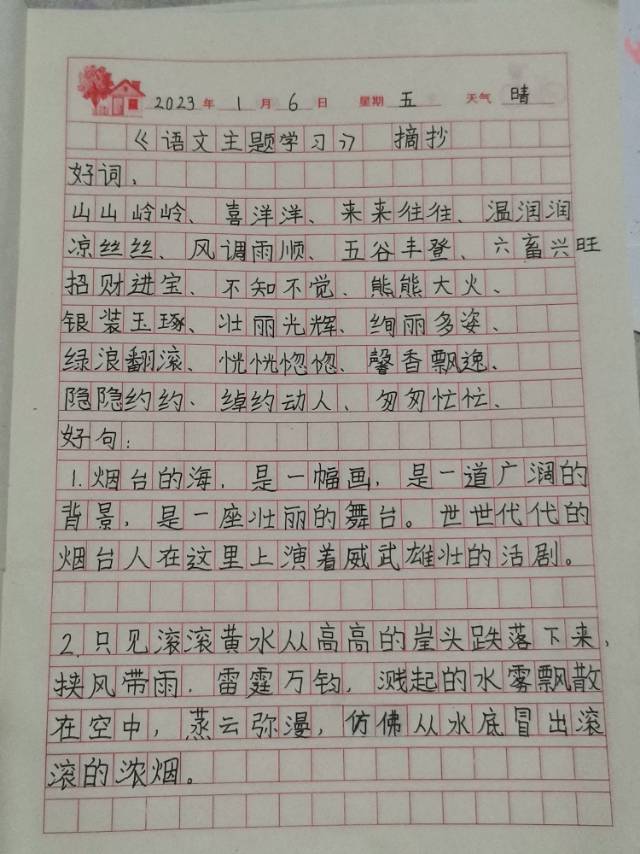 2023年1月6日 星期五 天气晴
《语文主题学习》 摘抄
好词、
山山岭岭、喜洋洋、来来往往、温润润
凉丝丝、风调雨顺、五谷丰登、六畜兴旺
招财进宝、不知不觉、熊熊大火、
银装玉琢、壮丽光辉、绚丽多姿、
绿浪翻滚、恍恍惚惚、馨香飘逸、
隐隐约约、绰约动人、匆匆忙忙、
好句：
1.烟台的海，是一幅画，是一道广阔的
背景，是一座壮丽的舞台。世世代代的
烟台人在这里上演着威武雄壮的活剧。
2.只见滚滚黄水从高高的崖头跌落下来，
挟风带雨．雷霆万钧，溅起的水雾飘散
在空中，蒸云弥漫，仿佛从水底冒出滚
滚的浓烟。